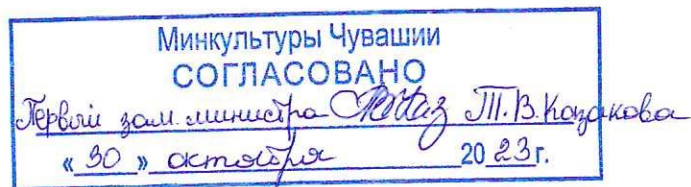 Минкультуры Чувашии
СОГЛАСОВАНО
Первый зам. министра Т.В. Казакова
«30» октября 2023г.